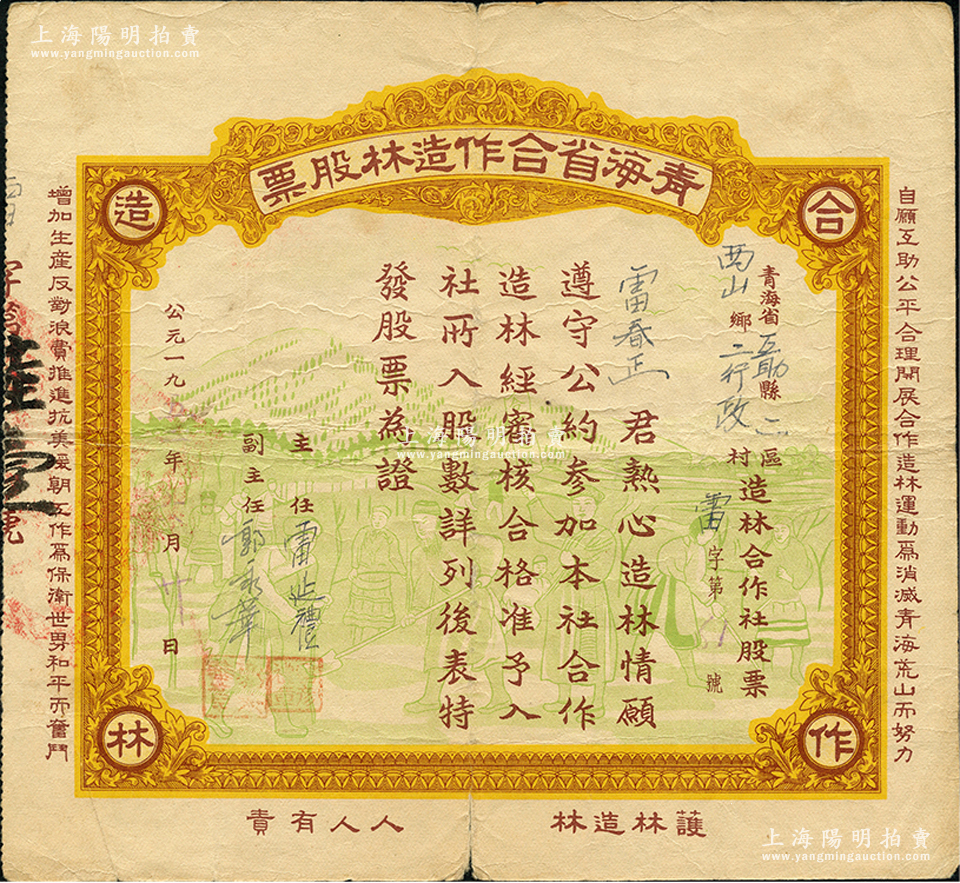 上海陽明拍賣
www.yangmingauction.com
青海省合作造林股票
合
作
造
林
自願互助公平合理開展合作造林運動爲消滅青海荒山而努力
青海省互助縣二區
西山鄉二行政村
造林合作社股票
雷字第1號
雷春正君熱心造林情願
遵守公約參加本社合作
造林經審核合格准予入
社所入股數詳列後表特
發股票為證
主任雷
副主任郭永華
公元一九年月日
增加生產反對浪費推進抗美援朝工作爲保衛世界和平而奮鬥
護林造林
人人有責
上海陽明拍賣
www.yangmingauction.com
上海陽明拍賣
www.yangmingauction.com